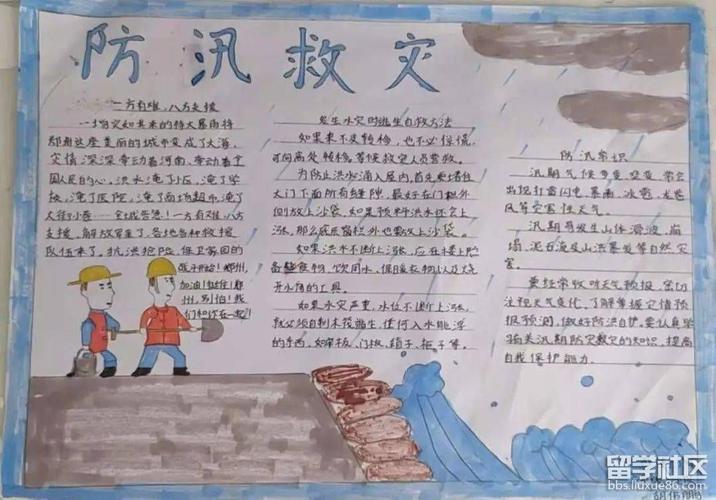 防汛救灾
一方有难,八方支援
一场突如其来的特大暴雨将
郑州这座美丽的城市变成了大海,
灾情深深牵动着河南、牵动着全
国人民的心。洪水淹了小区,淹了学
校,淹了医院,淹了商场超市,淹了
大街小巷……全城告急!一方有难,八方
支援,解放军来了,各地各种救援
队伍来了,抗洪抢险,保卫家园的
战斗开始!郑州,
加油!挺住!郑
州,别怕!我
们和你在一起!
发生水灾时逃生自救方法
如果来不及转移,也不必惊慌,
可向高处转移,等候救援人员营救。
为防止洪水涌入屋内,首先要堵住
大门下面所有缝隙,最好在门槛外
侧放上沙袋,如果预料洪水还会上
涨,那么底层窗槛外也要放上沙袋。
如果洪水不断上涨,应在楼上贮
备些食物,饮用水,保暖衣物以及烧
开水的工具。
如果水灾严重,水位不断上涨,
就必须自制木筏逃生,任何入水能浮
的东西,如床板、门板、箱子、柜子等。
防汛常识
汛期气候多变登变,常会
出现打雷闪电、暴雨、冰雹、龙卷
风等灾害性天气。
汛期易发生山体滑波、崩
塌、泥石流及山洪暴发等自然灾
害。
要经常收听天气预报,密切
注视天气变化,了解掌握灾情预
报预测,做好防洪自护。要认真学
习相关汛期防灾救灾的知识,提高
自我保护能力。
留学社区
bbs.liuxue86.com